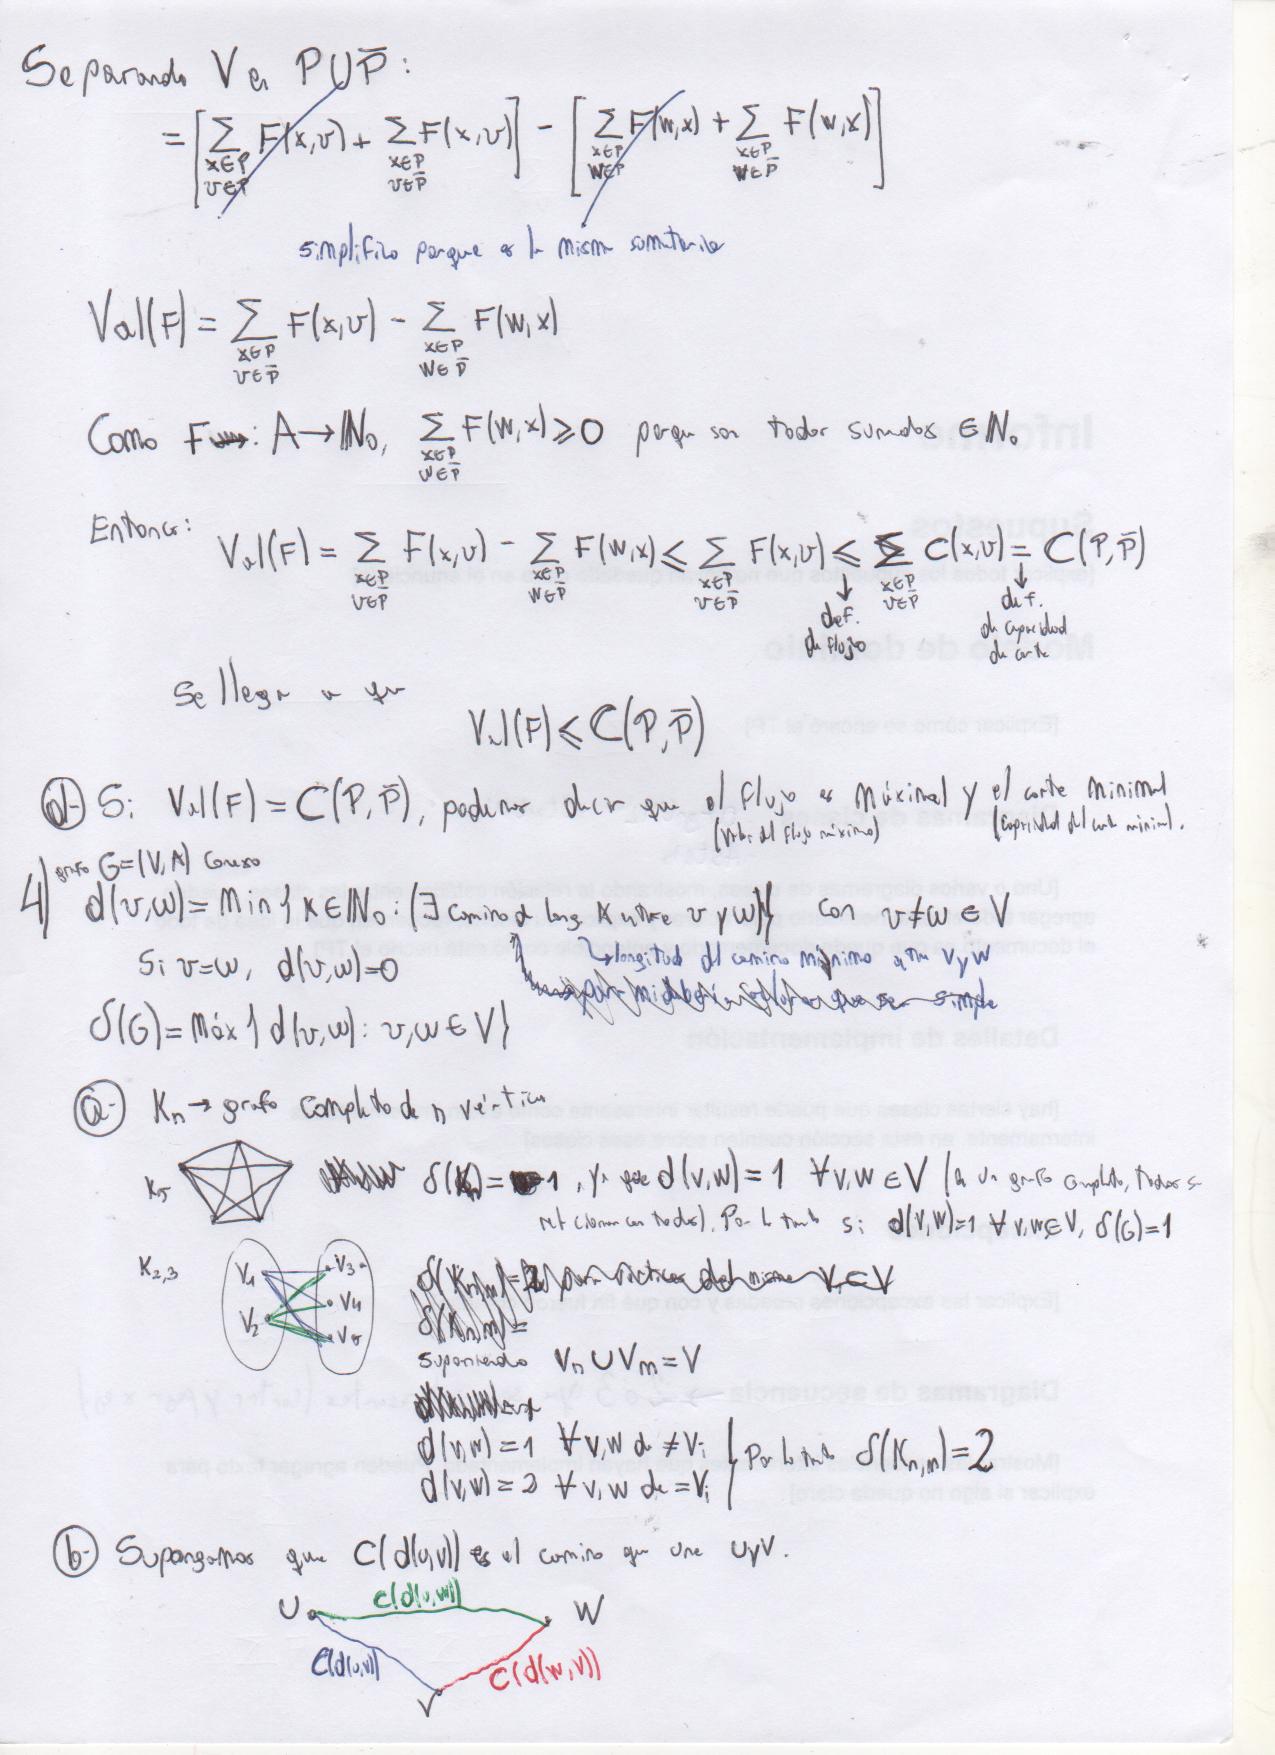 Separando V en P∪P̄:
= [∑ x∈P v∈P F(x,v) + ∑ x∈P v∈P̄ F(x,v)] - [∑ x∈P w∈P F(w,x) + ∑ x∈P w∈P̄ F(w,x)]
simplifico porque es la misma sumatoria
Val(F) = ∑ x∈P v∈P̄ F(x,v) - ∑ x∈P w∈P̄ F(w,x)
Como F: A→ℕ₀, ∑ x∈P w∈P̄ F(w,x) ≥ 0 porque son todos sumandos ∈ ℕ₀
Entonces: Val(F) = ∑ x∈P v∈P̄ F(x,v) - ∑ x∈P w∈P̄ F(w,x) ≤ ∑ x∈P v∈P̄ F(x,v) ≤ ∑ x∈P v∈P̄ C(x,v) = C(P,P̄)
def. de flujo
def. de capacidad de corte
Se llega a que
Val(F) ≤ C(P,P̄)
d- Si Val(F) = C(P,P̄), podemos decir que el flujo es máximal y el corte minimal
(valor del flujo máximo) (capacidad del corte minimal.
4) grafo G=(V,A) conexo
d(v,w) = Min{K∈ℕ₀: (∃ camino de long. K entre v y w)} con v≠w ∈ V
Si v=w, d(v,w)=0
↳longitud del camino mínimo entre v y w
δ(G) = Máx{d(v,w): v,w ∈ V}
a- Kn → grafo completo de n vértices
K5
δ(Kn) = 1, ya que d(v,w) = 1 ∀ v,w ∈ V (en un grafo completo, todos se
relacionan con todos). Por lo tanto si d(v,w)=1 ∀ v,w∈V, δ(G)=1
K2,3
V1 V3
V4
V2 V5
suponiendo Vn ∪ Vm = V
d(v,w) = 1 ∀ v,w de ≠Vi
d(v,w) = 2 ∀ v,w de =Vi
Por lo tanto δ(Kn,m) = 2
b- Supongamos que C(d(u,v)) es el camino que une u y v.
C(d(u,w))
U W
C(d(u,v)) C(d(w,v))
V